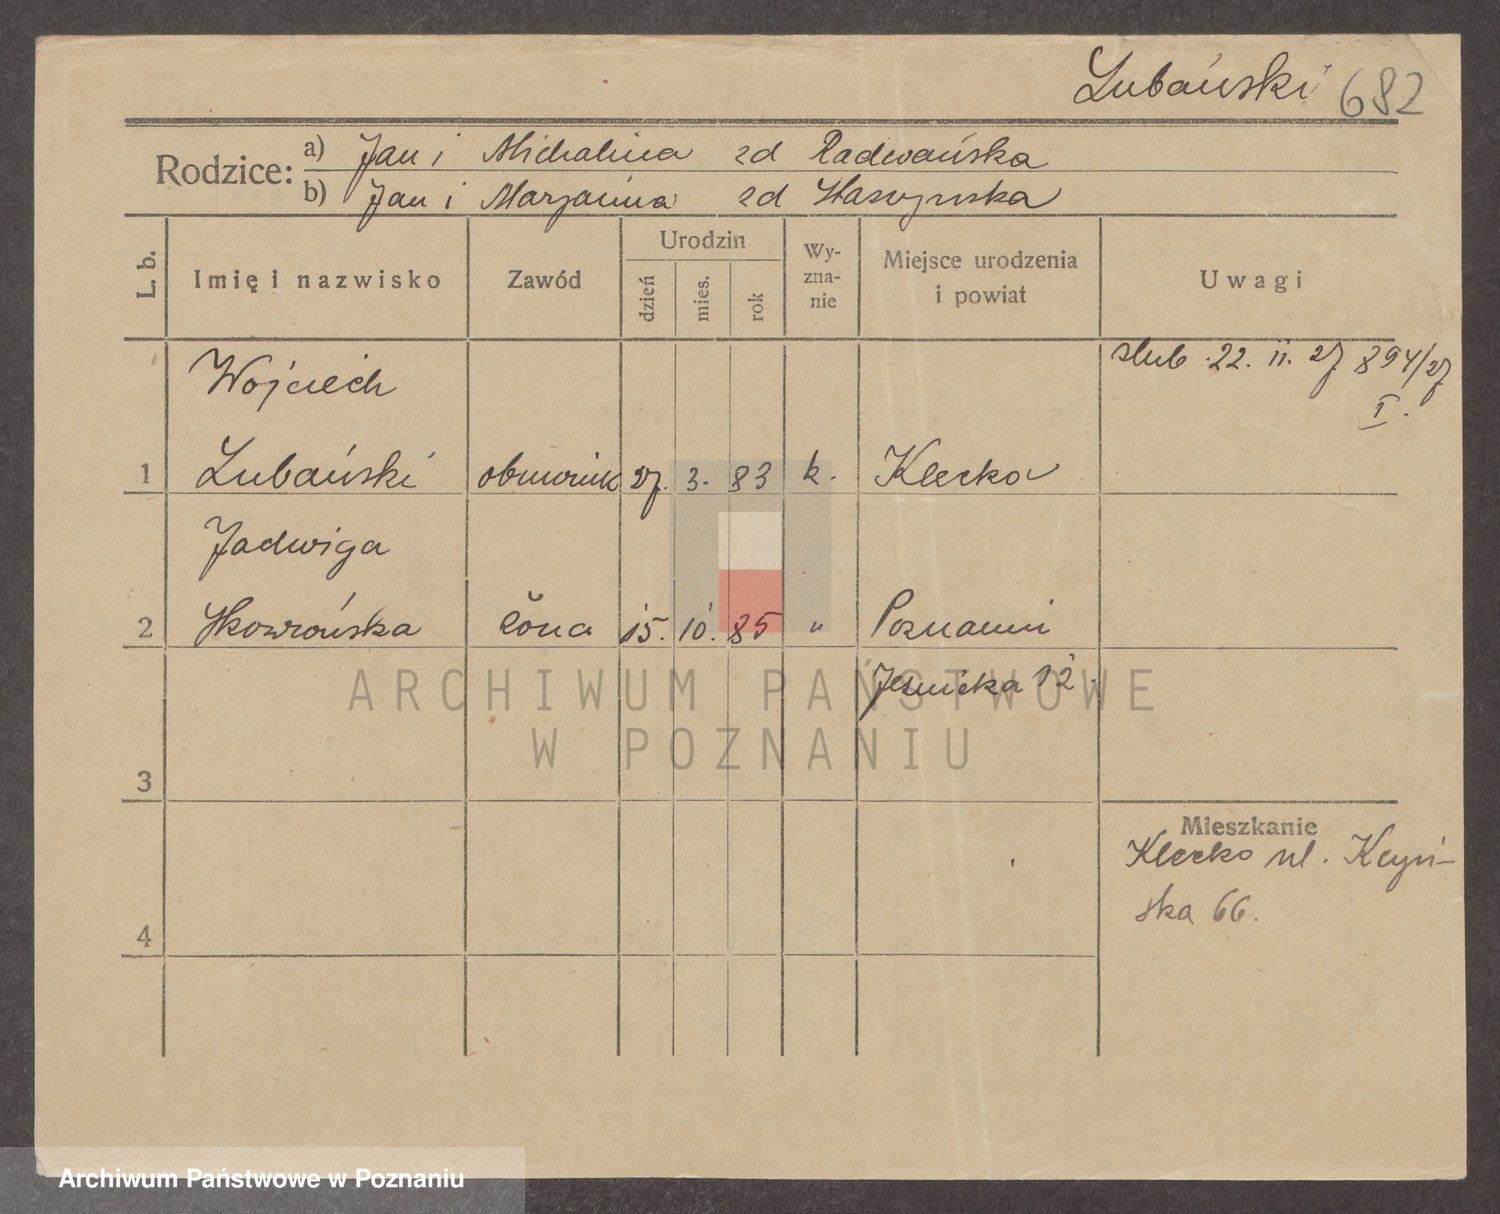 Lubański 682
Rodzice:
a) Jan i Michalina zd Radwańska
b) Jan i Marjanna zd
L. b.
Imię i nazwisko
Zawód
Urodzin
dzień
mies.
rok
Wy-
zna-
nie
Miejsce urodzenia
i powiat
Uwagi
Wojciech
ślub 22. 11. 27 894/27
I.
1 Lubański 27. 3. 83 k. Klecko
Jadwiga
2 Skowrońska żona 15. 10. 85 " Poznaniu
12.
ARCHIWUM PAŃSTWOWE
W POZNANIU
3
Mieszkanie
Klecko ul. Kcyń-
ska 66.
4
Archiwum Państwowe w Poznaniu